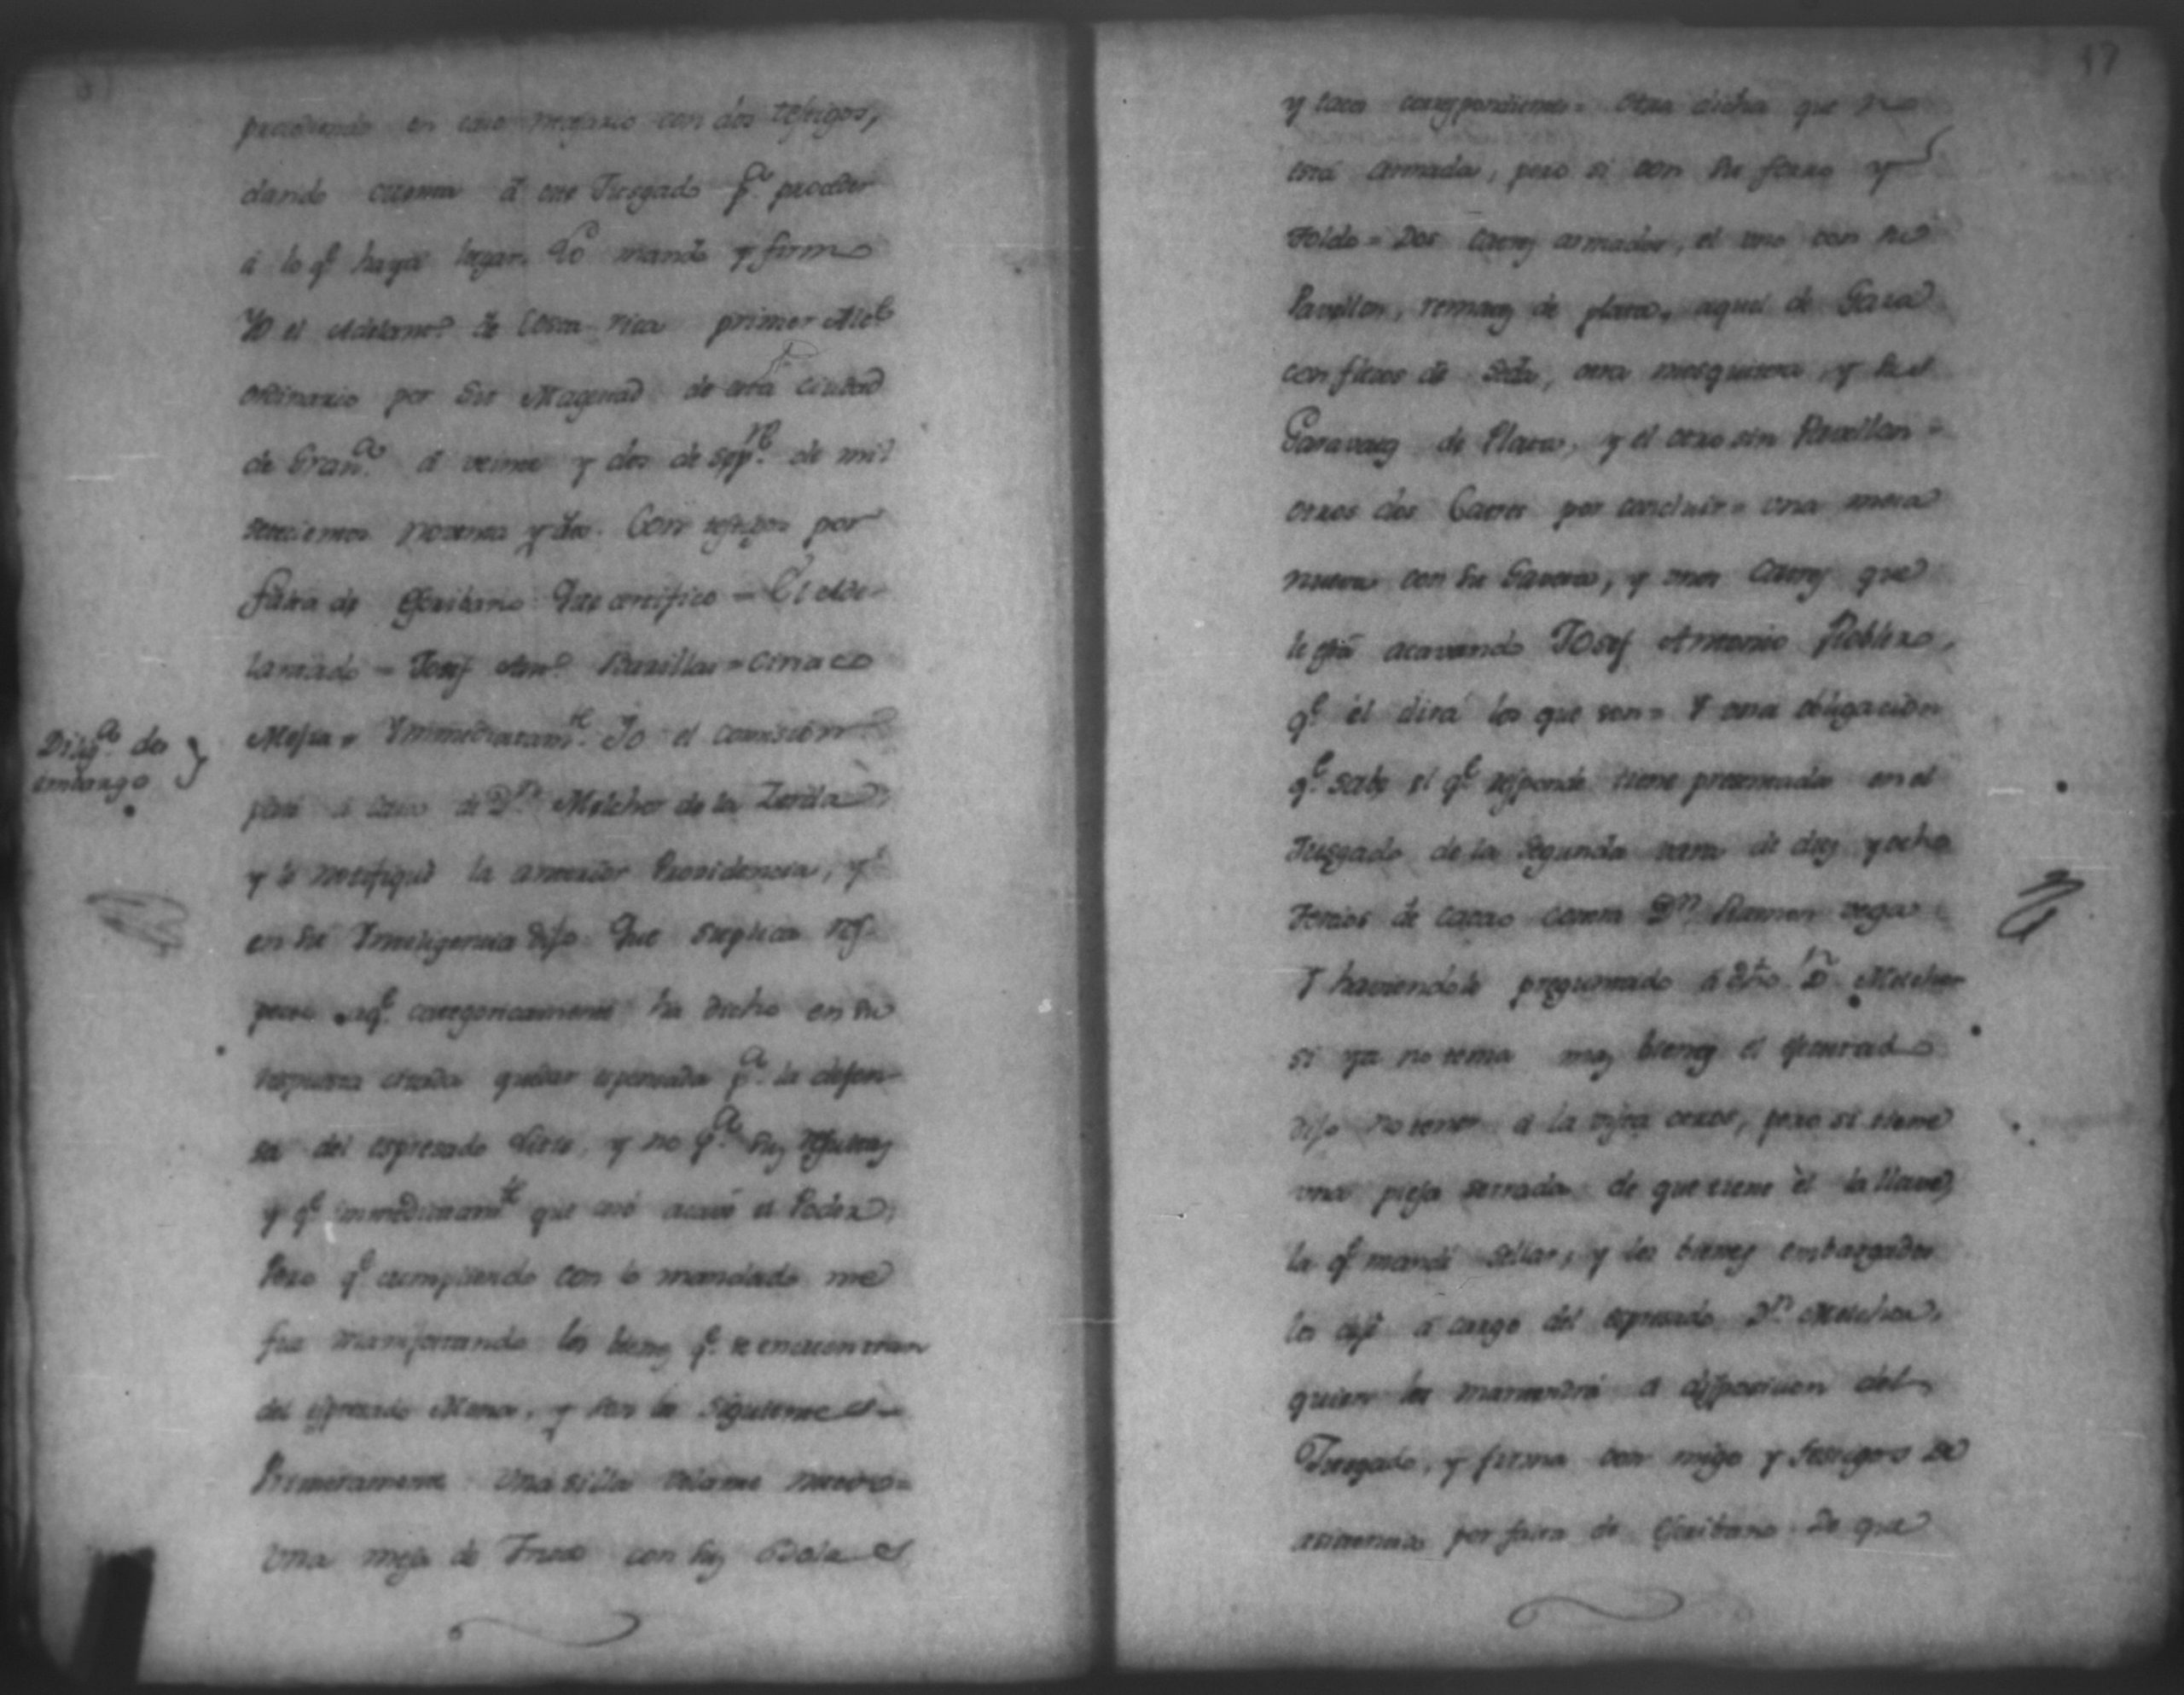 procediendo en caso necesario con dos testigos,
dando cuenta á este Jusgado p.a proceder
á lo q.e haya lugar. Lo mandó y firmo
Yo el Adelant.o de Costa rica primer Alc.e
ordinario por Su Magestad de esta Ciudad
de Gran.a á veinte y dos de sep.re de mil
setecientos noventa y dos. Con testigos por
falta de Escribano Que certifico = El Ade-
lantado = Josef Ant.o = Ciriaco
Mejia = Ymmediatam.te Yo el comision.o
pasé á casa de D.n Melchor de la Zerda
y le notifiqué la anterior Providencia, y
en su Ynteligencia dijo Que suplica res-
q.e categoricamente ha dicho en su
respuesta citada quedar p.a la defen-
sa del espresado y no p.a sus resultas
y q.e immediatam.te que cesó acavó el Poder,
Pero q.e cumpliendo con lo mandado me
fue manifestando los bienes q.e se encuentran
del espresado y son los siguientes =
Primeramente Una silla bolante nueva =
Una meja de con sus Bolas
Dilig.a de
embargo
17
y tacos correspondientes = Otra dicha que no
está armada, pero si con su forro y
toldo = Dos Catres armados, el uno con su
Pavellon, remates de plata, aquel de Gasa
con flecos de Seda, otra mosquitera, y sus
Garavatos de Plata, y el otro sin Pavellon =
Otros dos Catres por concluir = Una mesa
nueva con su Gaveta, y unos Catres que
le está acavando Josef Antonio Roblero,
q.e el dirá los que son = Y una obligacion
q.e sabe el q.e responde tiene presentada en el
Jusgado de la Segunda vara de diez y ocho
tercios de cacao contra D.n Ramon Vega
Y haviendole preguntado á dho D.n Melchor
si ya no tenia mas bienes el
dijo no tener á la vista otros, pero si tiene
una pieza serrada de que tiene él la llave,
la q.e mandé sellar, y los bienes embargados
los dejé á cargo del espresado D.n Melchor,
quien los mantendrá á disposicion del
Jusgado, y firma con migo y testigos de
asistencia por falta de Escribano De que